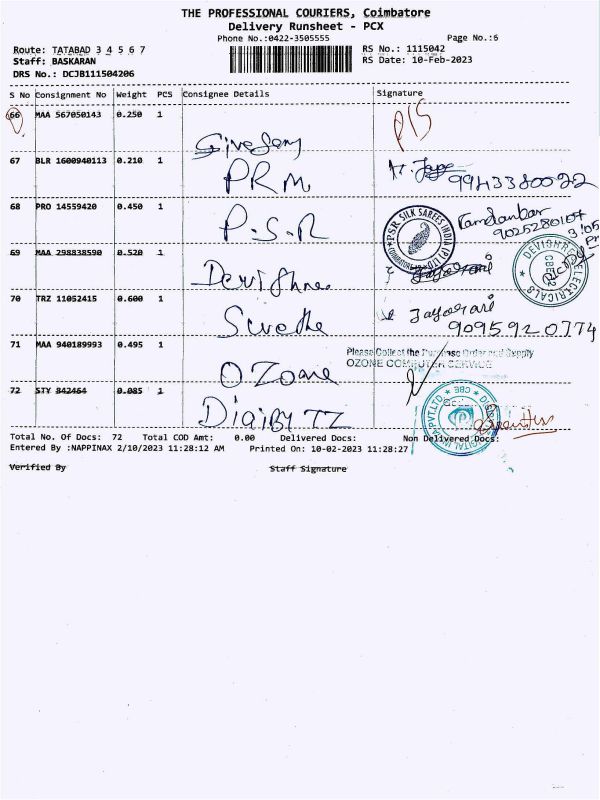 THE PROFESSIONAL COURIERS, Coimbatore
Delivery Runsheet - PCX
Phone No.:0422-3505555
Page No.:6
Route: TATABAD 3 4 5 6 7
RS No.: 1115042
Staff: BASKARAN
RS Date: 10-Feb-2023
DRS No.: DCJB111504206
S No Consignment No Weight PCS Consignee Details Signature
66 MAA 567050143 0.250 1
67 BLR 1600940113 0.210 1 PRM 9943380022
68 PRO 14559420 0.450 1 P.S.R 9025280107
PSR SILK SAREES INDIA (P) LTD
69 MAA 298838590 0.520 1
DEVISHREE ELECTRICALS
70 TRZ 11052415 0.600 1 Swetha 9095920774
71 MAA 940189993 0.495 1 OZone
Please Collect the Purchase Order and Supply
OZONE COMPUTER SERVICE
72 STY 842464 0.085 1
Total No. Of Docs: 72 Total COD Amt: 0.00 Delivered Docs: Non Delivered Docs:
Entered By :NAPPINAX 2/10/2023 11:28:12 AM Printed On: 10-02-2023 11:28:27
Verified By Staff Signature